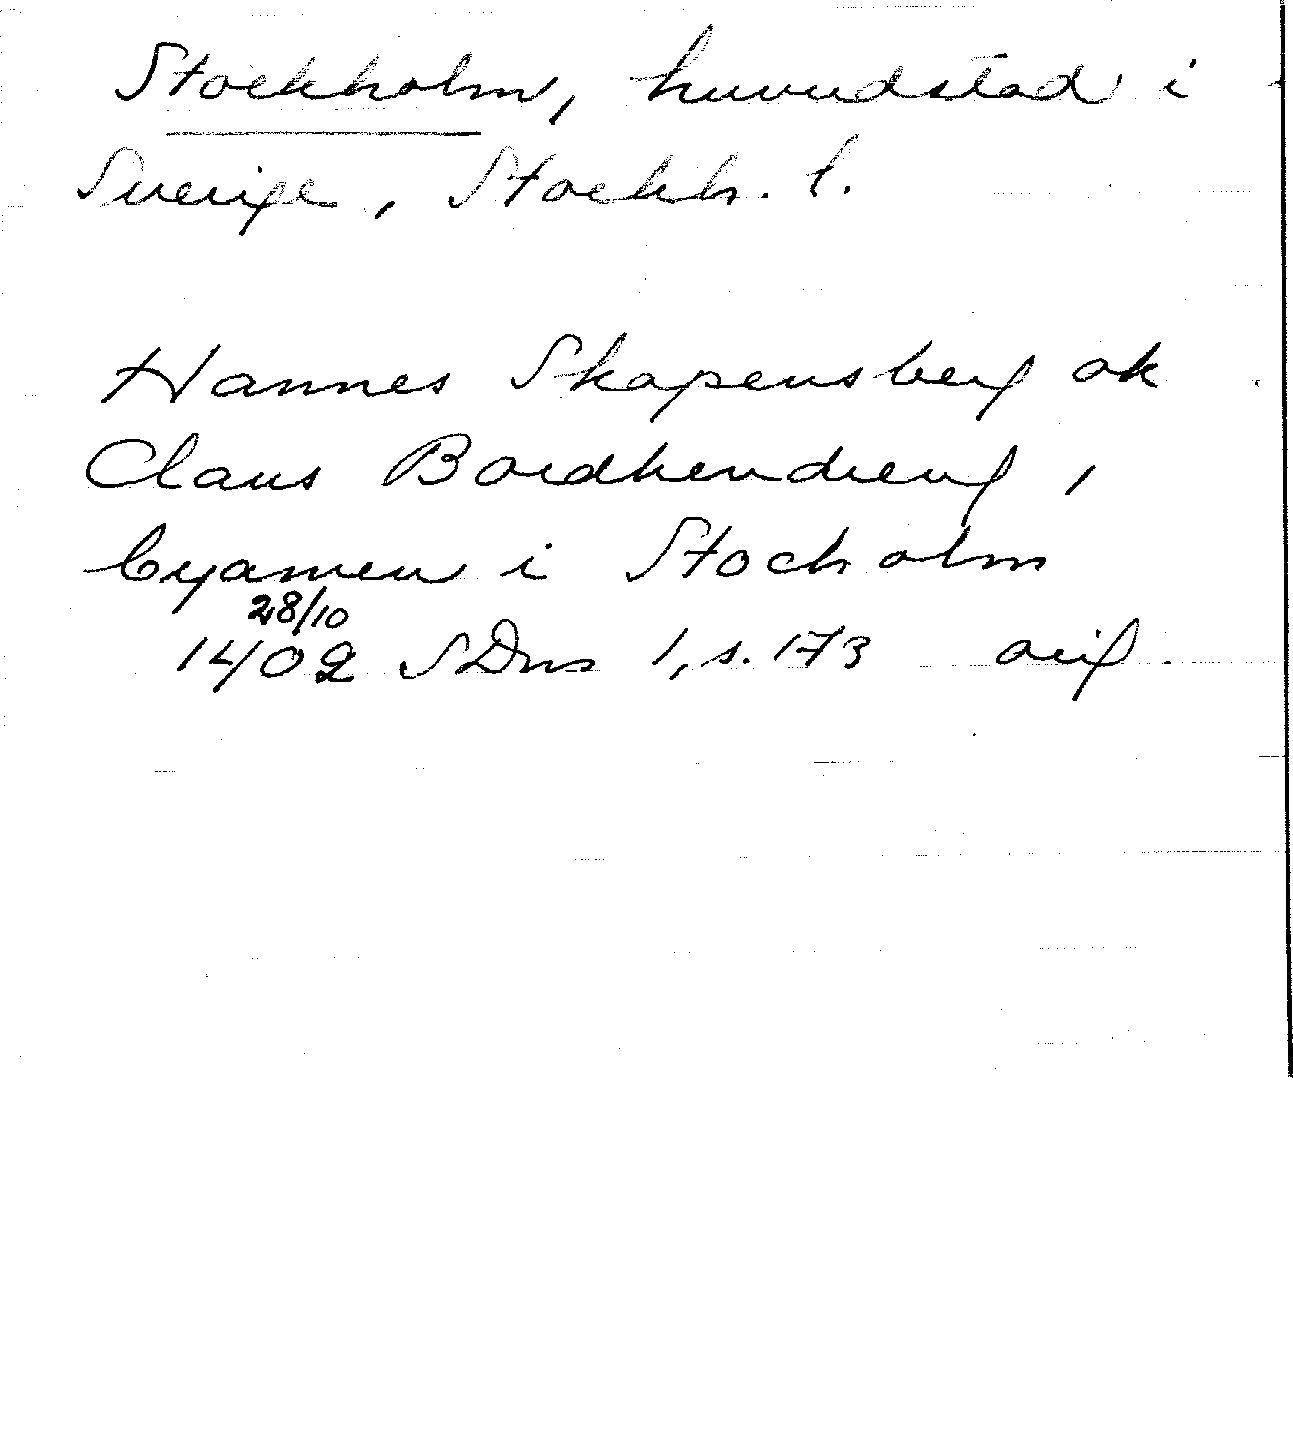 Stockholm, huvudstad i
Sverige, Stockh. l.
Hannes Skapensberg ok
Claus Bordhendreng,
byamen i Stocholm
28/10
1402 SDns 1, s. 173 orig.